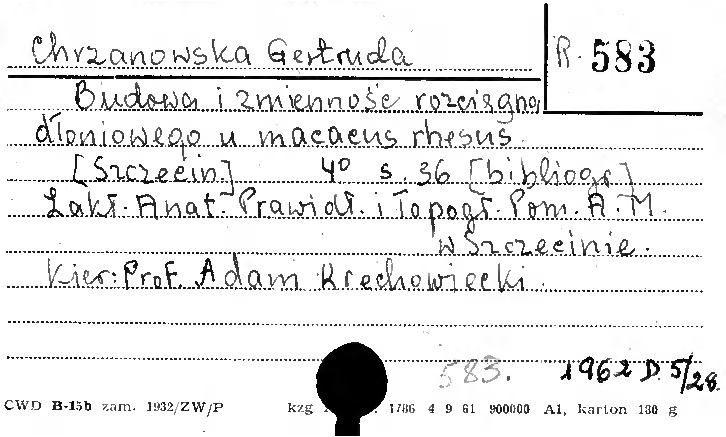 Chrzanowska Gertruda
R. 583
Budowa i zmienność rozcięgna
dłoniowego u macacus rhesus.
[Szczecin] 4° s. 36 [bibliogr.]
Zakł. Anat. Prawidł. i Topogr. Pom. A. M.
w Szczecinie.
Kier: Prof. Adam Krechowiecki.
583. 1962 D. 5/28.
CWD B-15b zam. 1932/ZW/P kzg 1786 4 9 61 900000 A1, karton 180 g